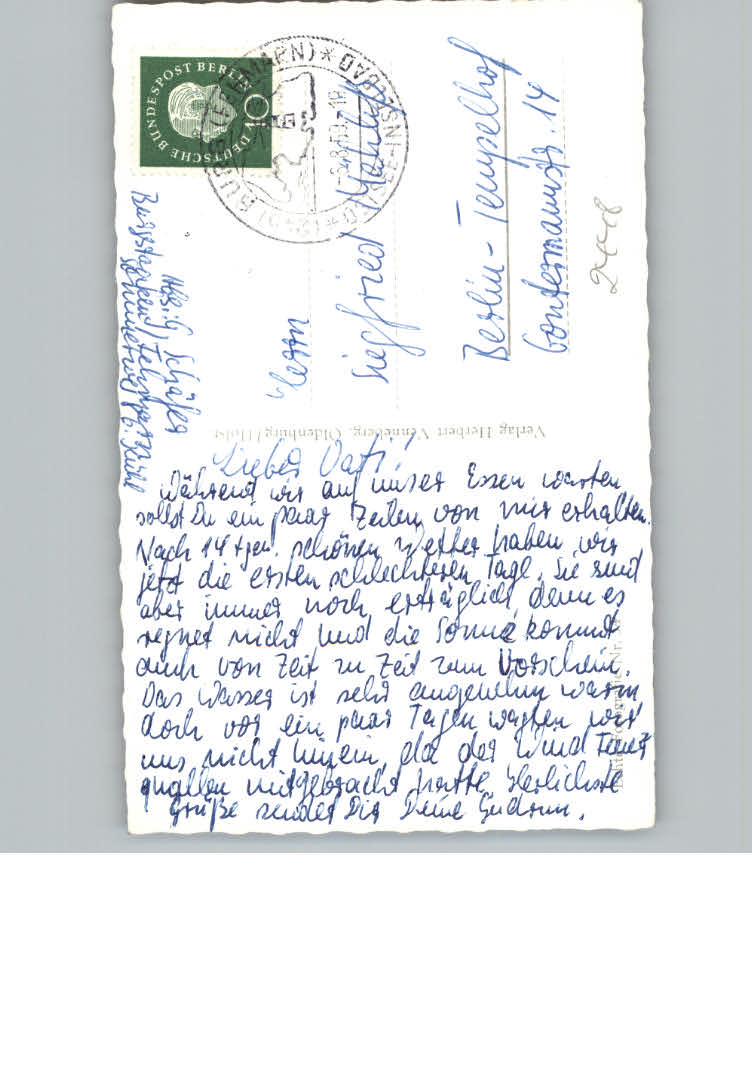 Lieber Vati!
Während wir auf unser Essen warten
sollst Du ein paar Zeilen von mir erhalten.
Nach 14 tgen. schönen Wetter haben wir
jetzt die ersten schlechteren Tage. Sie sind
aber immer noch erträglich, denn es
regnet nicht und die Sonne kommt
auch von Zeit zu Zeit zum Vorschein.
Das Wasser ist sehr angenehm warm
doch vor ein paar Tagen wagten wir
uns nicht hinein, da der Wind Feuer
quallen mitgebracht hatte. Herlichste
Grüße sendet Dir Deine Gudrun.
Herrn
Siegfried
Berlin-Tempelhof
Gontermannstr. 14
Abs. G. Schäfer
Burgstaaken/Fehmarn
Sommerweg
DEUTSCHE BUNDESPOST BERLIN
10
BURG (FEHMARN) * OSTSEE-INSELBAD
-8.59.-18
Verlag Herbert Venneberg, Oldenburg/Holst